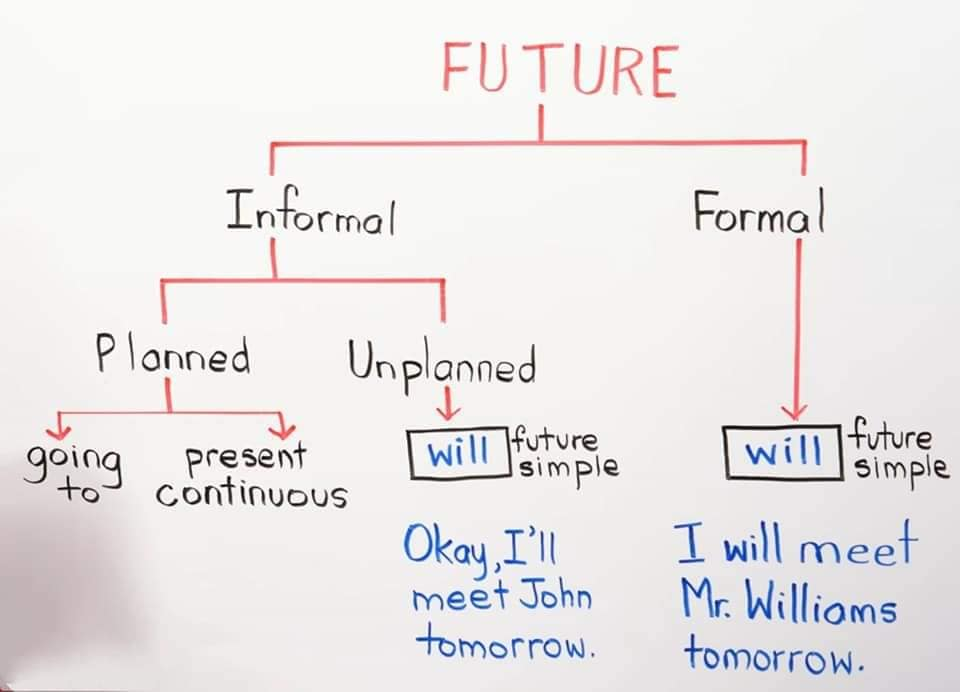 FUTURE
Informal
Formal
Planned
Unplanned
going
to
present
continuous
will
future
simple
will
future
simple
Okay, I'll
meet John
tomorrow.
I will meet
Mr. Williams
tomorrow.